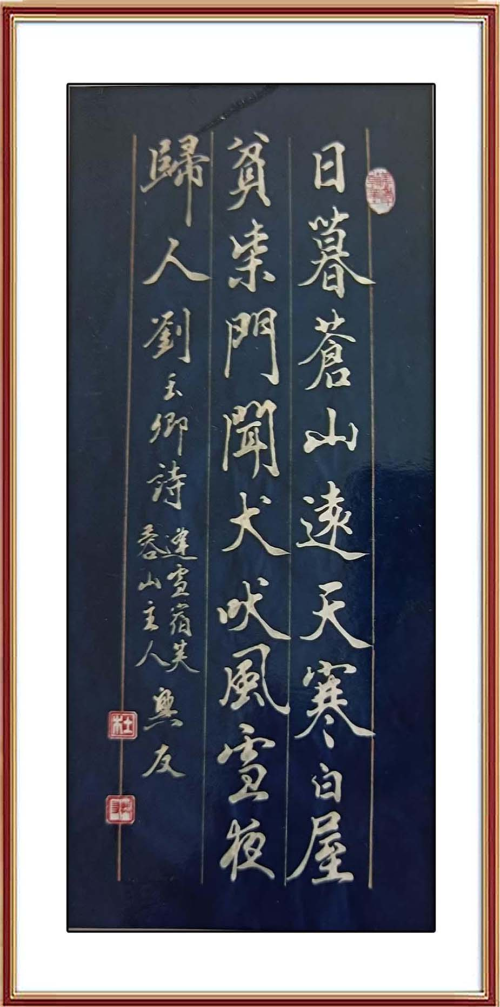 日暮蒼山遠天寒白屋
貧柴門聞犬吠風雪夜
歸人劉長卿詩
逢雪宿芙
蓉山主人
友
杜